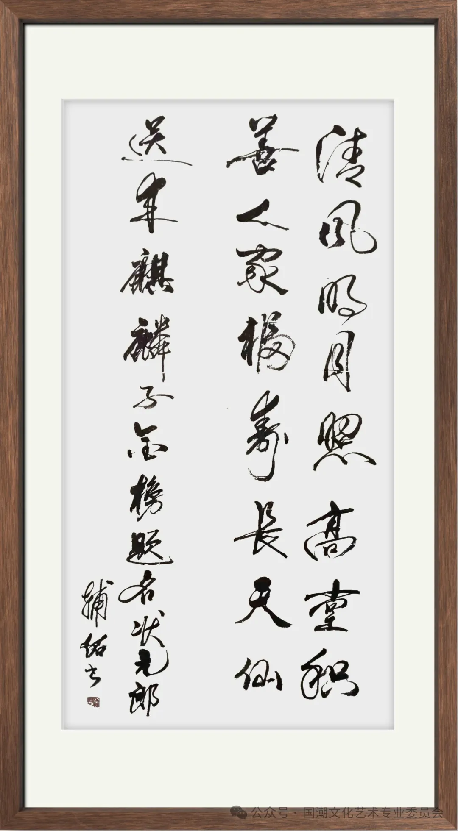 清风明月照高堂积
善人家福寿長天仙
送来麒麟子金榜题名状元郎
辅书
公众号·国潮文化艺术专业委员会